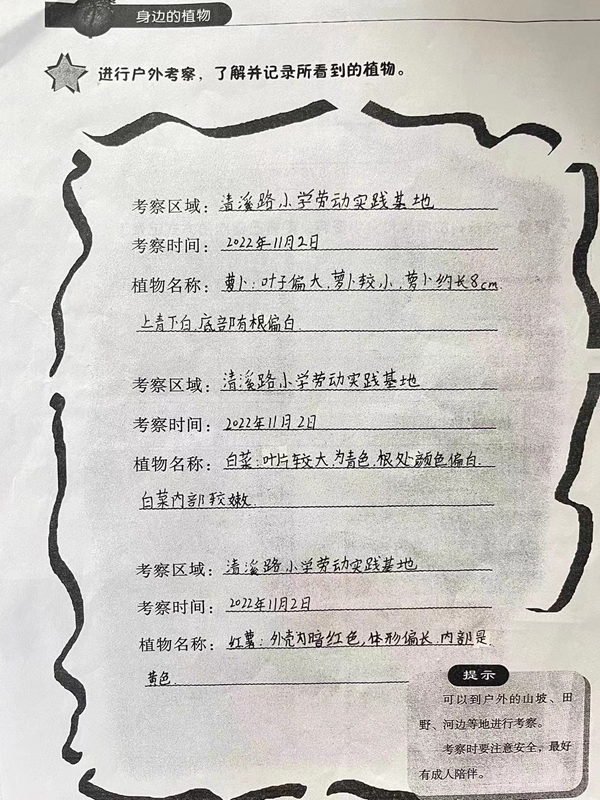 身边的植物
进行户外考察，了解并记录所看到的植物。
考察区域：清溪路小学劳动实践基地
考察时间：2022年11月2日
植物名称：萝卜：叶子偏大，萝卜较小，萝卜约长8cm，
上青下白，底部有根偏白。
考察区域：清溪路小学劳动实践基地
考察时间：2022年11月2日
植物名称：白菜：叶片较大，为青色，根处颜色偏白，
白菜内部较嫩。
考察区域：清溪路小学劳动实践基地
考察时间：2022年11月2日
植物名称：红薯：外壳为暗红色，体形偏长，内部是
黄色
提示
可以到户外的山坡、田
野、河边等地进行考察。
考察时要注意安全，最好
有成人陪伴。